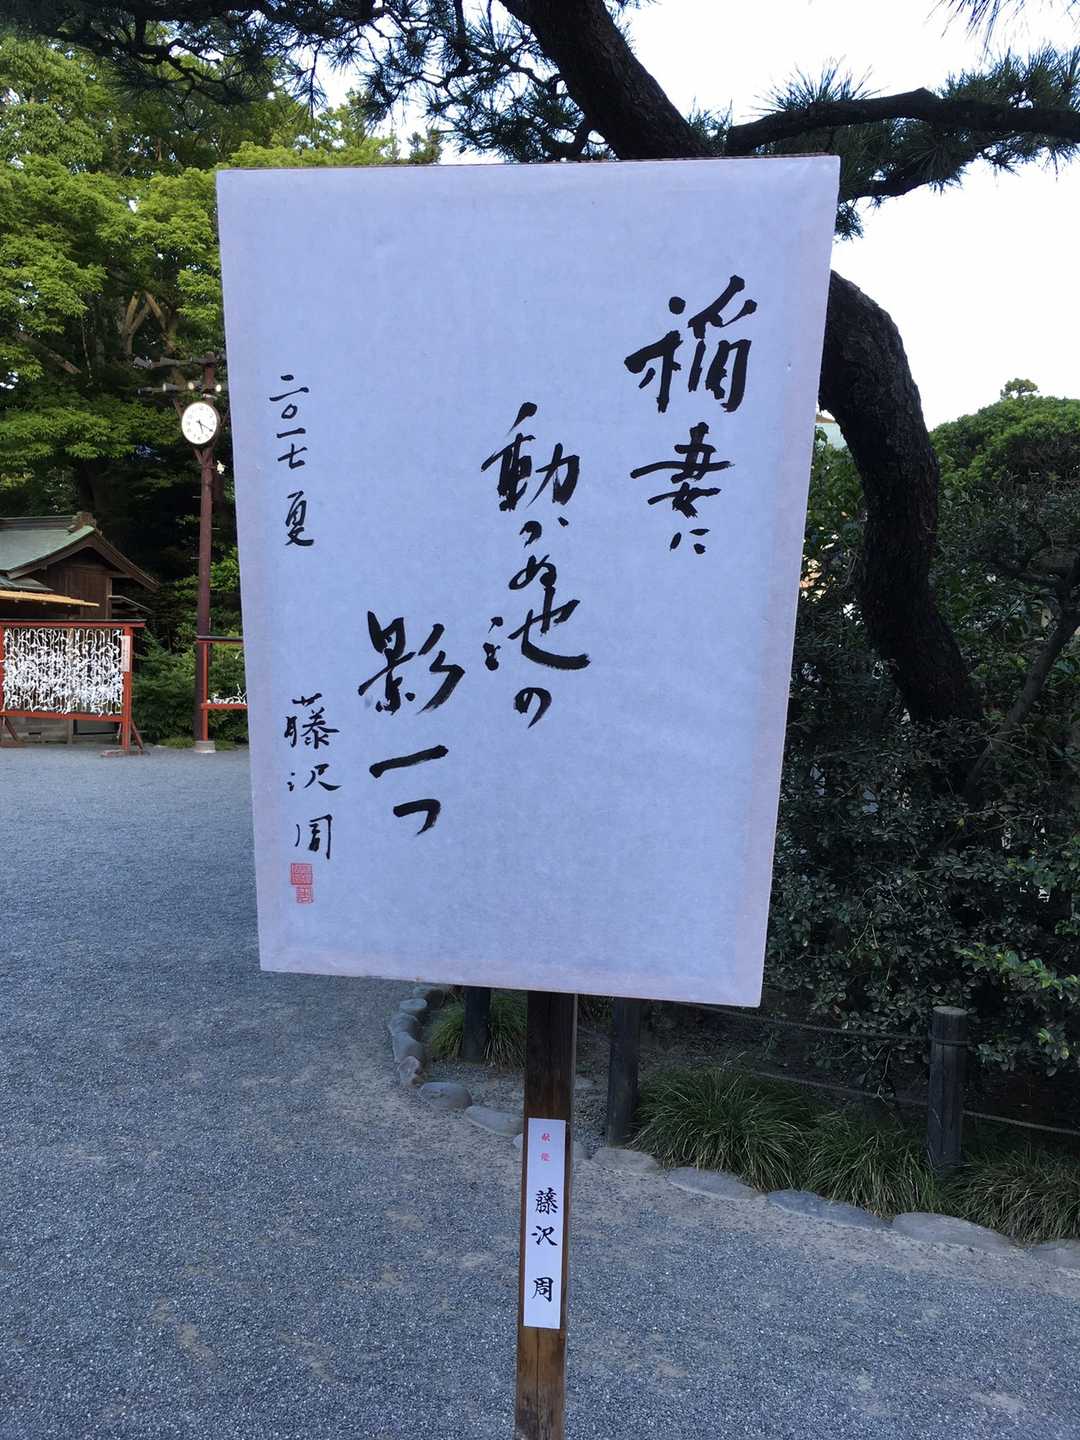 稲妻に
動かぬ池の
影一つ
二〇一七 夏
藤沢周
藤沢 周